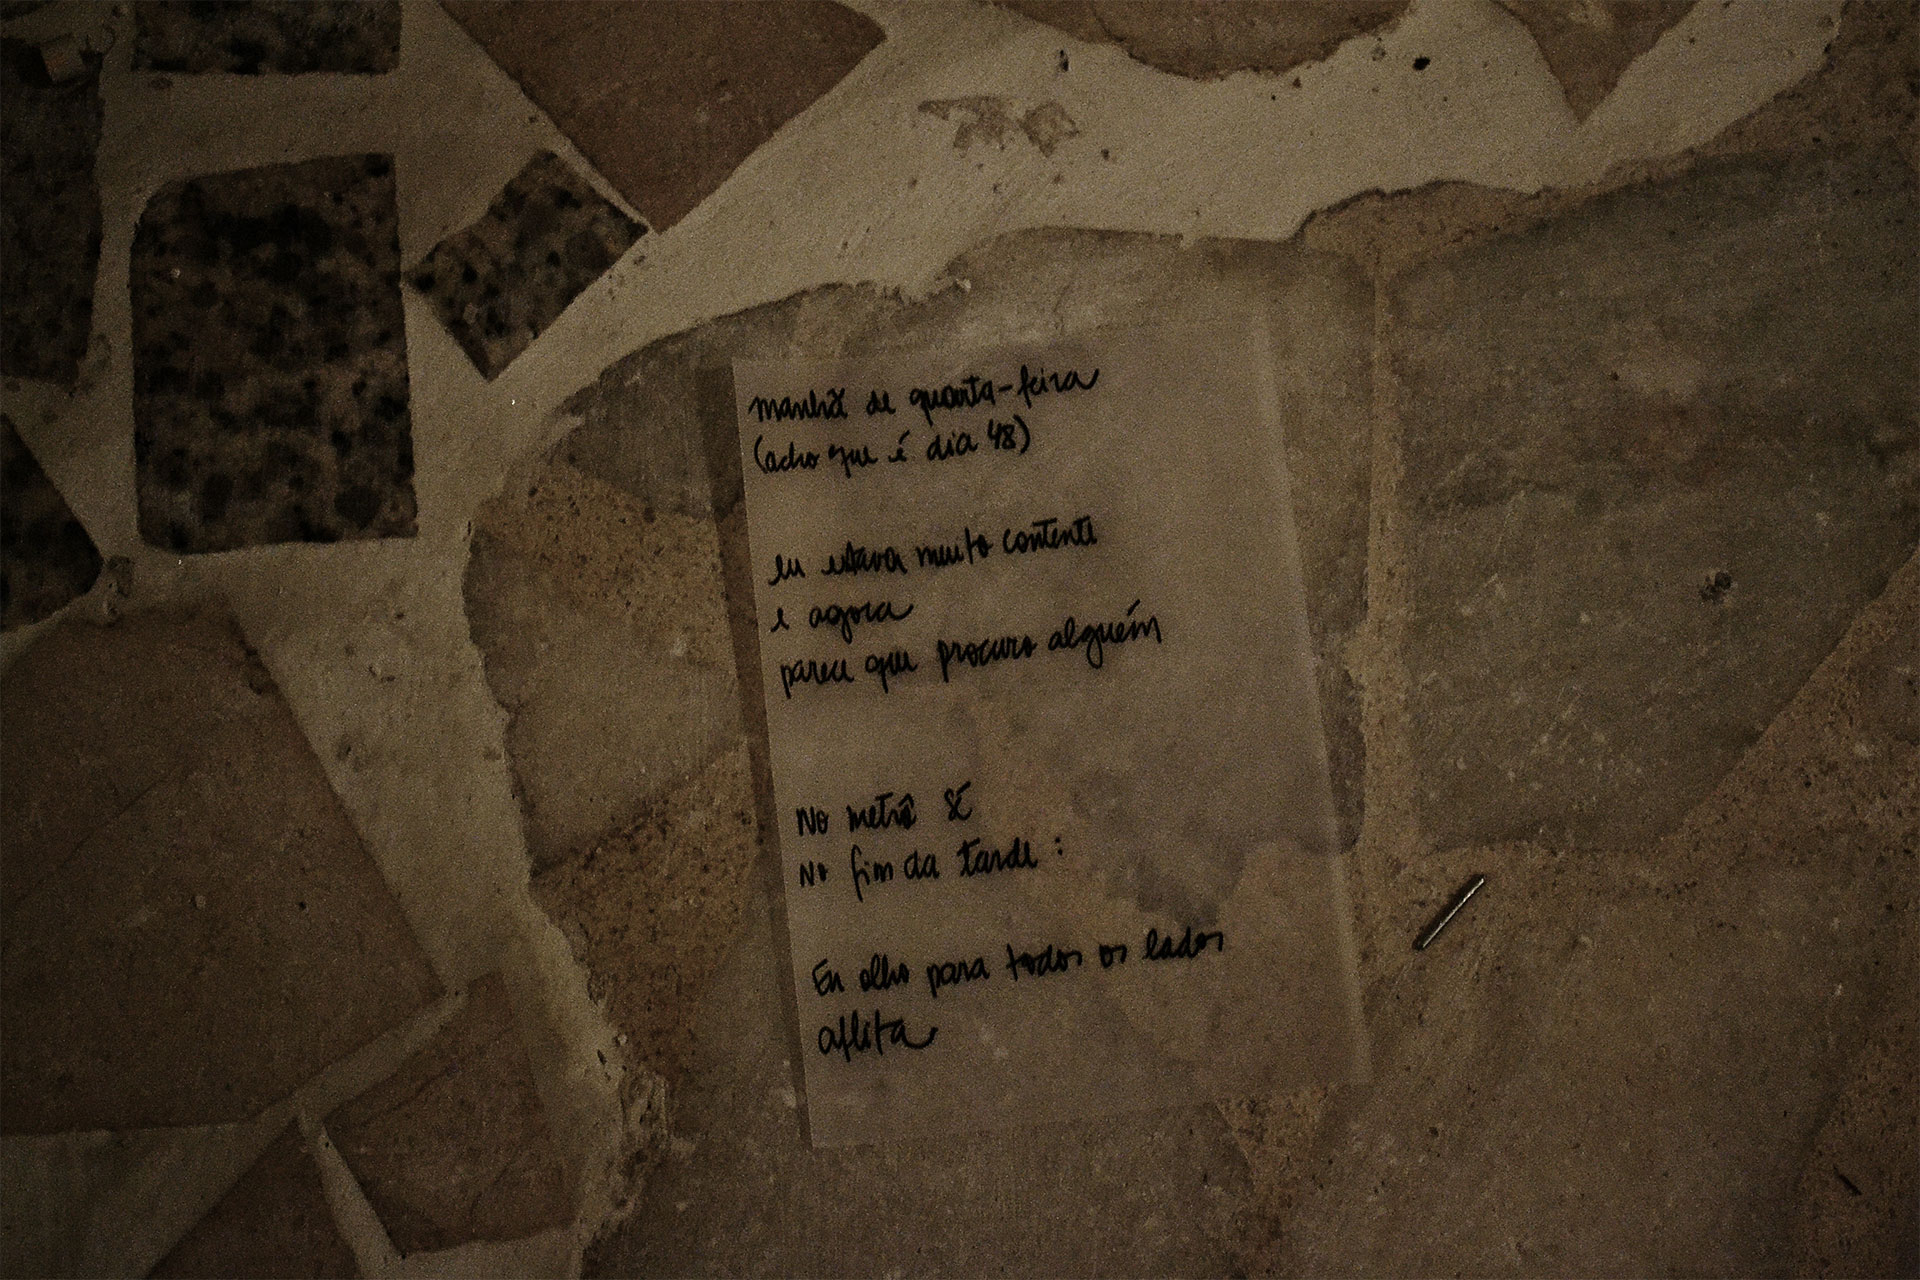 manhã de quarta-feira
(acho que é dia 48)
eu estava muito contente
e agora
parece que procuro alguém
No metrô SÉ
No fim da tarde :
Eu olho para todos os lados
aflita